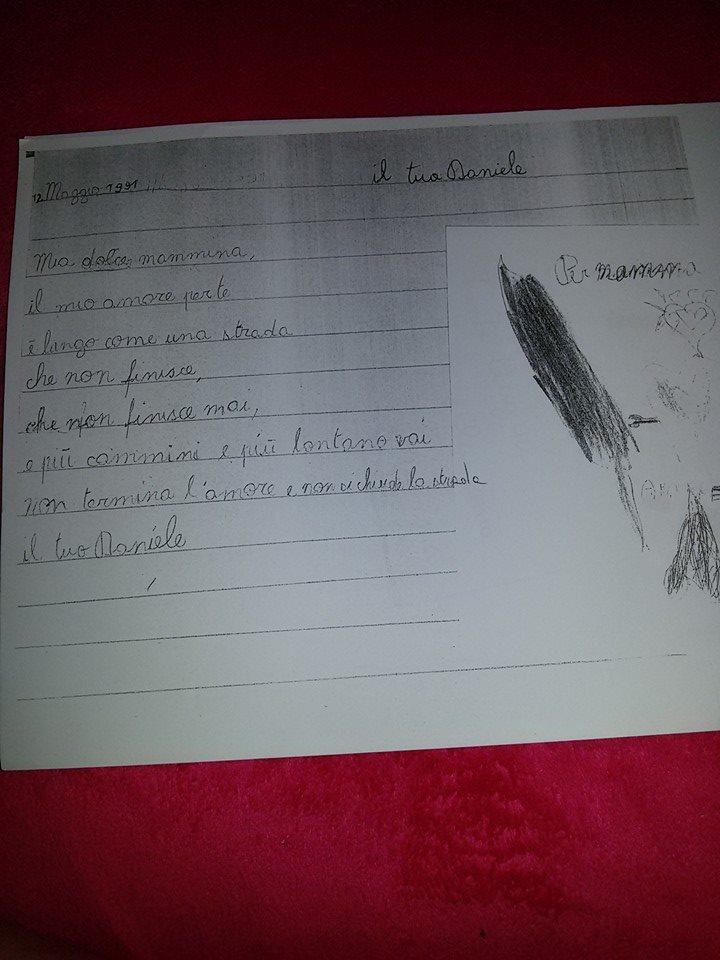 12 Maggio 1991
il tuo Daniele
Mia dolce mammina,
il mio amore perte
è lungo come una strada
che non finisce,
che non finisce mai,
e più cammini e più lontano vai
non termina l'amore e non si chiude la strada
il tuo Daniele
Per mamma